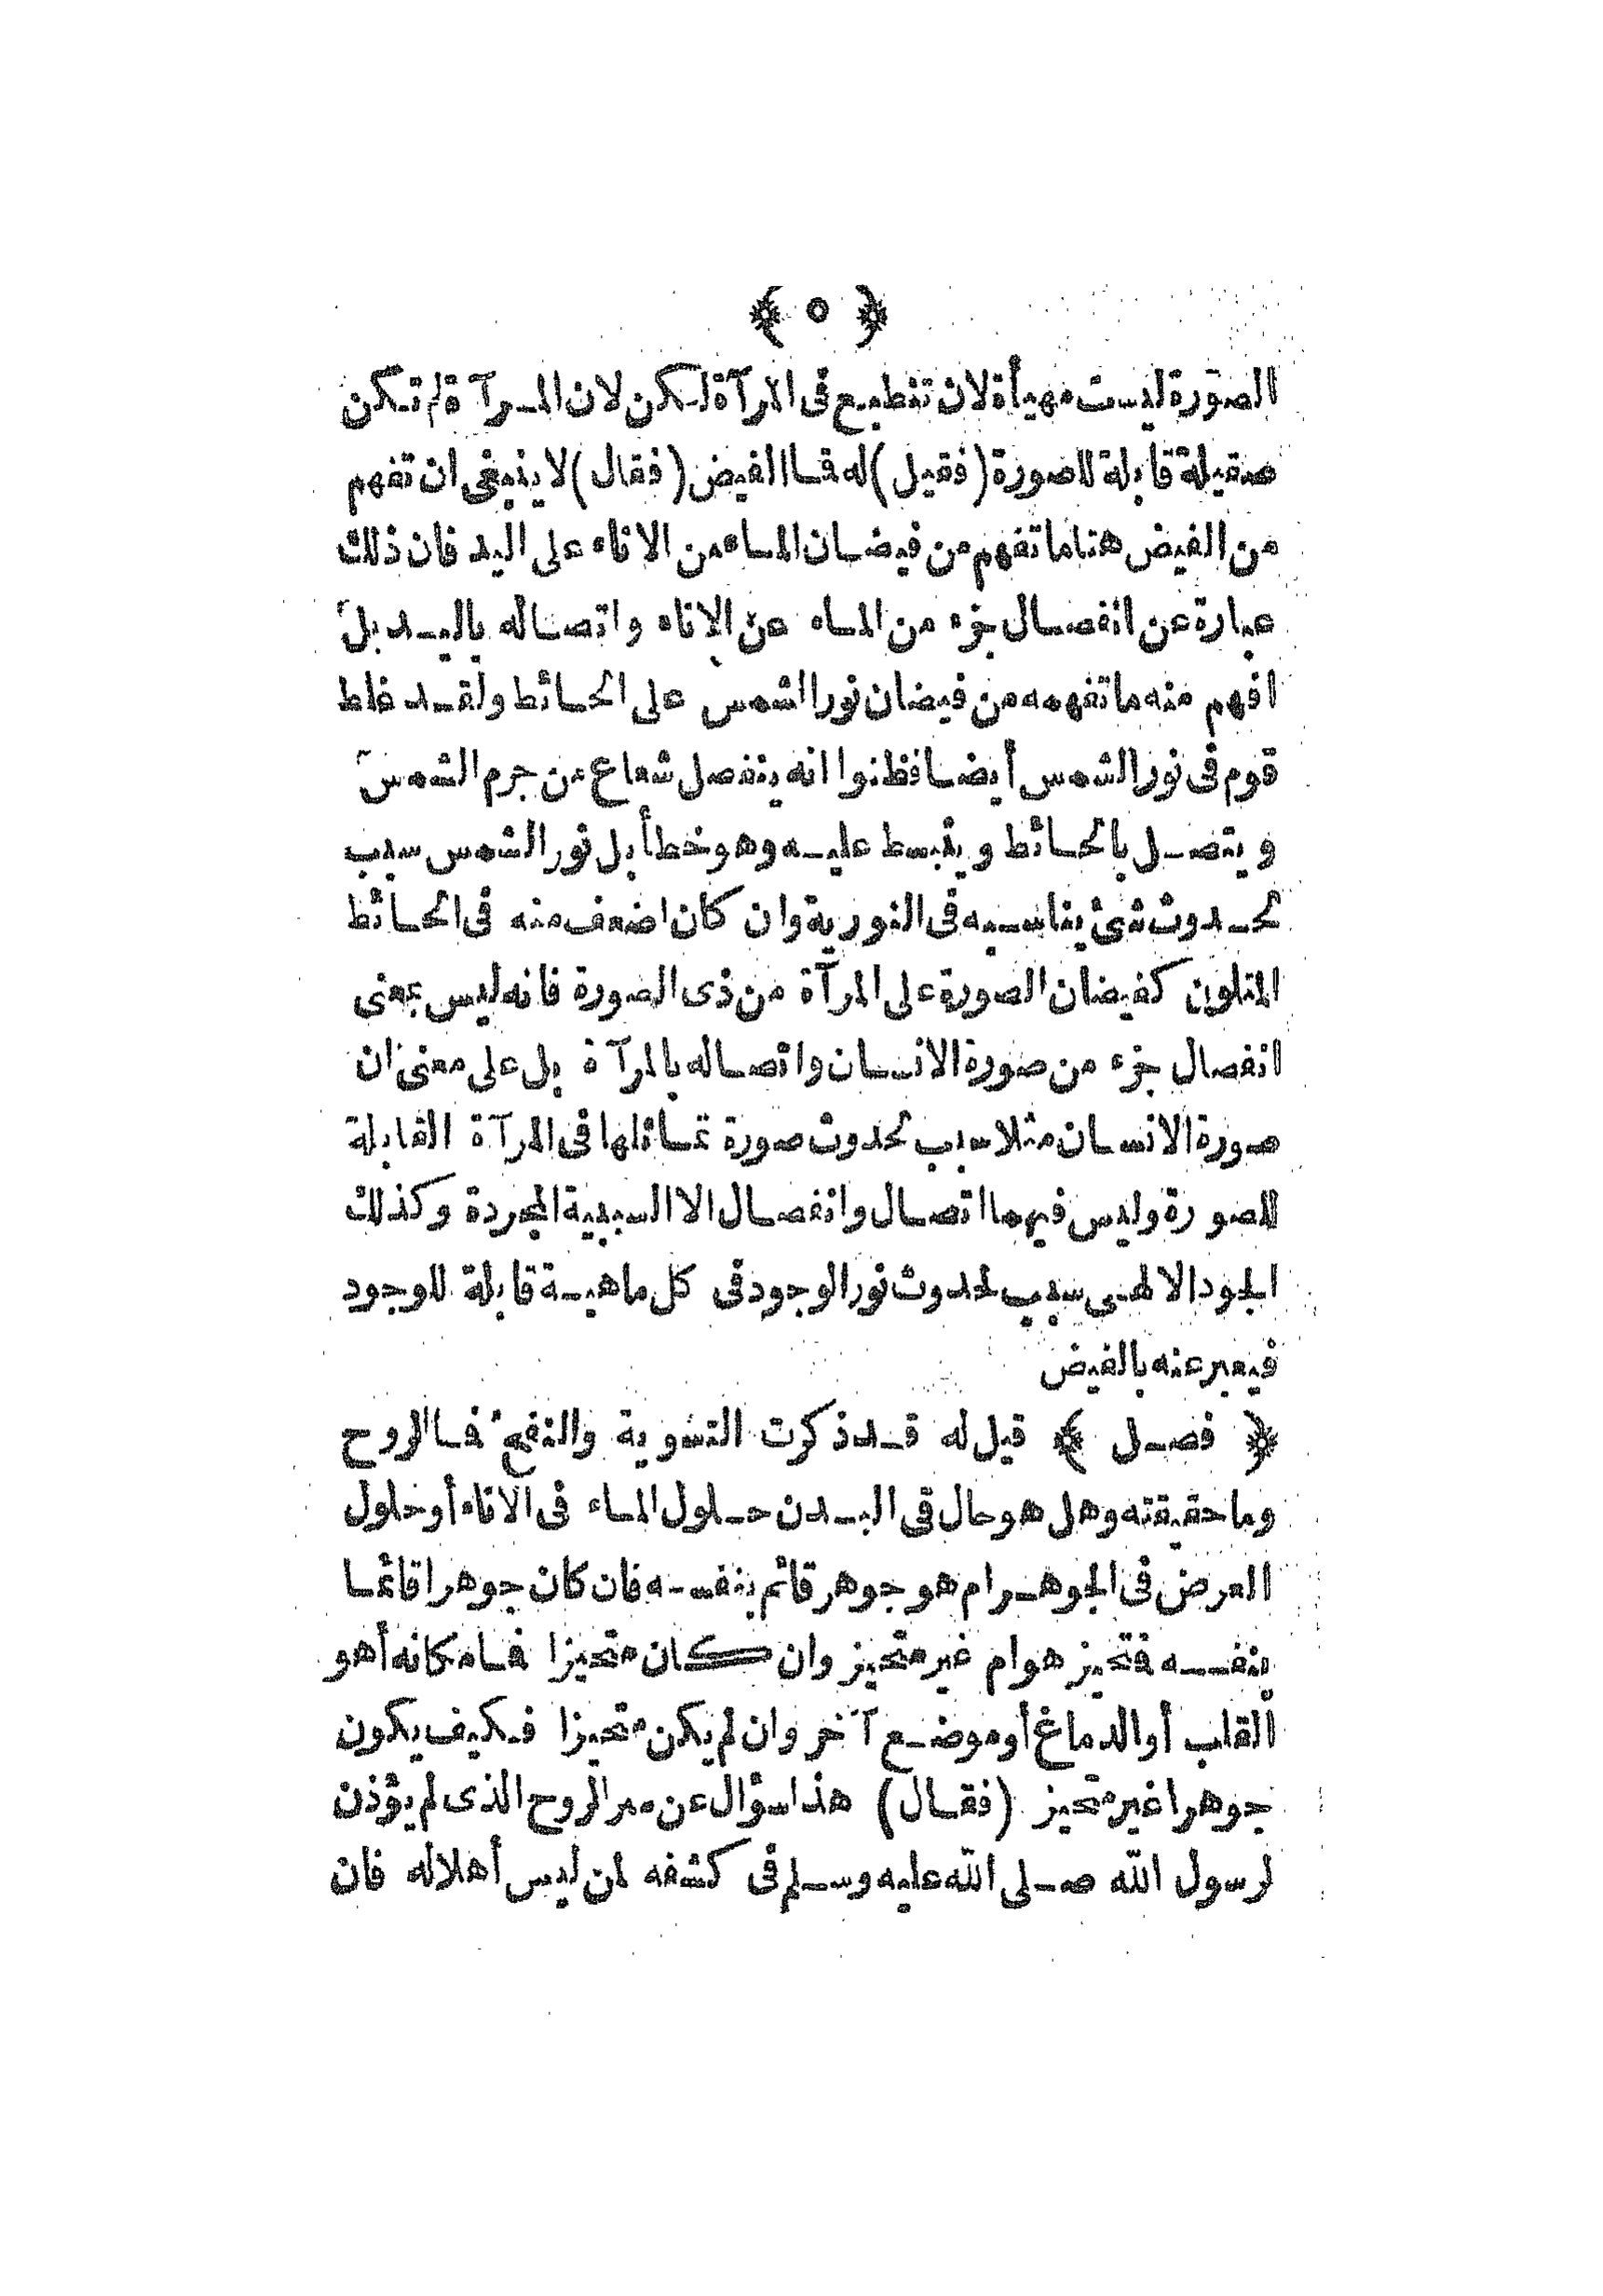 ﴿ ٥ ﴾
الصورة ليست مهيأة لان تنطبع فى المرآة لكن لان المرآة لم تكن
صقيلة قابلة للصورة (فقيل) له فما الفيض (فقال) لا ينبغى ان تفهم
من الفيض هنا ما تفهم من فيضان الماء من الاناء على اليد فان ذلك
عبارة عن انفصال جزء من الماء عن الاناء واتصاله باليد بل
افهم منه ما تفهمه من فيضان نور الشمس على الحائط ولقد غلط
قوم فى نور الشمس أيضا فظنوا انه ينفصل شعاع من جرم الشمس
و يتصل بالحائط و ينبسط عليه وهو خطأ بل نور الشمس سبب
لحدوث شئ يناسبه فى النورية وان كان اضعف منه فى الحائط
المتلون كفيضان الصورة على المرآة من ذى الصورة فانه ليس بمعنى
انفصال جزء من صورة الانسان واتصاله بالمرآة بل على معنى ان
صورة الانسان مثلا سبب لحدوث صورة تماثلها فى المرآة القابلة
للصورة وليس فيهما اتصال وانفصال الا السببية المجردة وكذلك
الجود الالهى سبب لحدوث نور الوجود فى كل ماهية قابلة للوجود
فيعبر عنه بالفيض
﴿ فصل ﴾ قيل له قد ذكرت التسوية والنفخ فما الروح
وما حقيقته وهل هو حال فى البدن حلول الماء فى الاناء أو حلول
العرض فى الجوهر ام هو جوهر قائم بنفسه فان كان جوهرا قائما
بنفسه فتحيز هو ام غير متحيز وان كان متحيزا فما مكانه أهو
القلب أو الدماغ أو موضع آخر وان لم يكن متحيزا فكيف يكون
جوهرا غير متحيز (فقال) هذا سؤال عن سر الروح الذى لم يؤذن
لرسول الله صلى الله عليه وسلم فى كشفه لمن ليس أهلا له فان